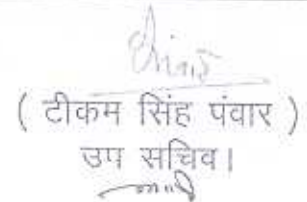 ( टीकम सिंह पंवार )
उप सचिव।